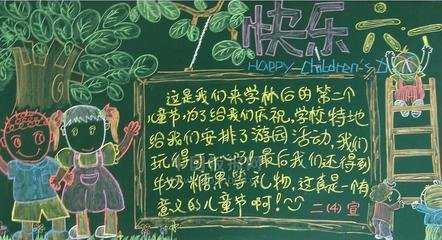 快乐
HAPPY children's D
这是我们来学校后的第二个
儿童节,为了给我们庆祝,学校特地
给我们安排了游园活动,我们
玩得可开心了!最后我们还得到
牛奶糖果等礼物,这真是一个有
意义的儿童节啊!
二(4)宣